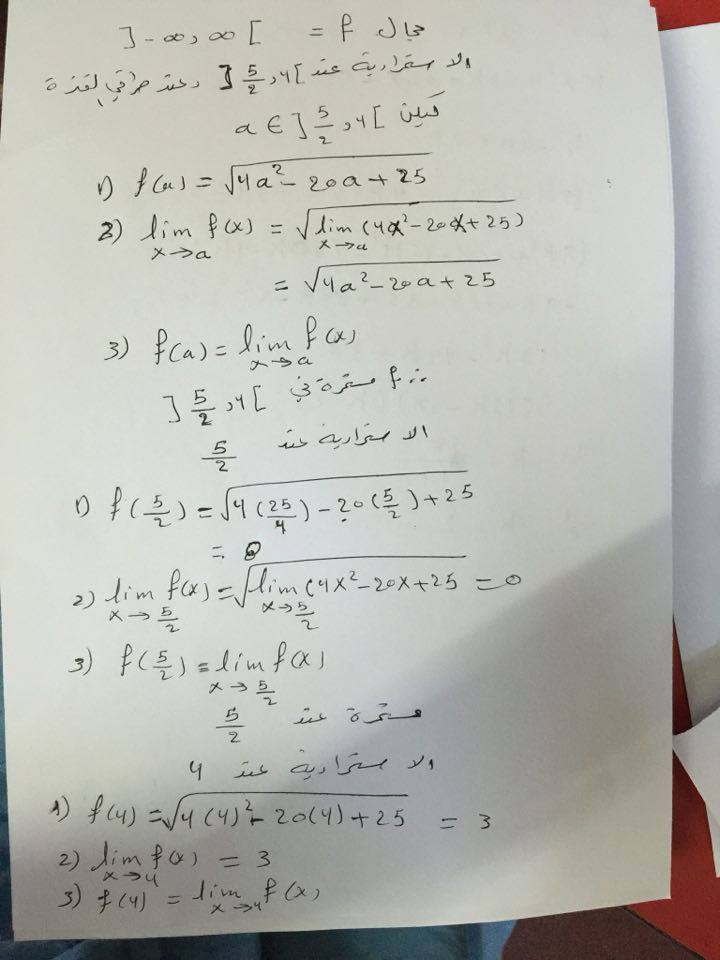 مجال f = ]-∞, ∞[
الاستمرارية عند ]5/2, 4[ وعند طرفي الفترة
ليكن a ∈ ]5/2, 4[
1) f(a) = √(4a² - 20a + 25)
2) lim x→a f(x) = √(lim x→a (4x² - 20x + 25))
= √(4a² - 20a + 25)
3) f(a) = lim x→a f(x)
∴ f مستمرة في ]5/2, 4[
الاستمرارية عند 5/2
1) f(5/2) = √(4(25/4) - 20(5/2) + 25
= 0
2) lim x→5/2 f(x) = √(lim x→5/2 (4x² - 20x + 25 = 0
3) f(5/2) = lim x→5/2 f(x)
مستمرة عند 5/2
الاستمرارية عند 4
1) f(4) = √(4(4)² - 20(4) + 25) = 3
2) lim x→4 f(x) = 3
3) f(4) = lim x→4 f(x)